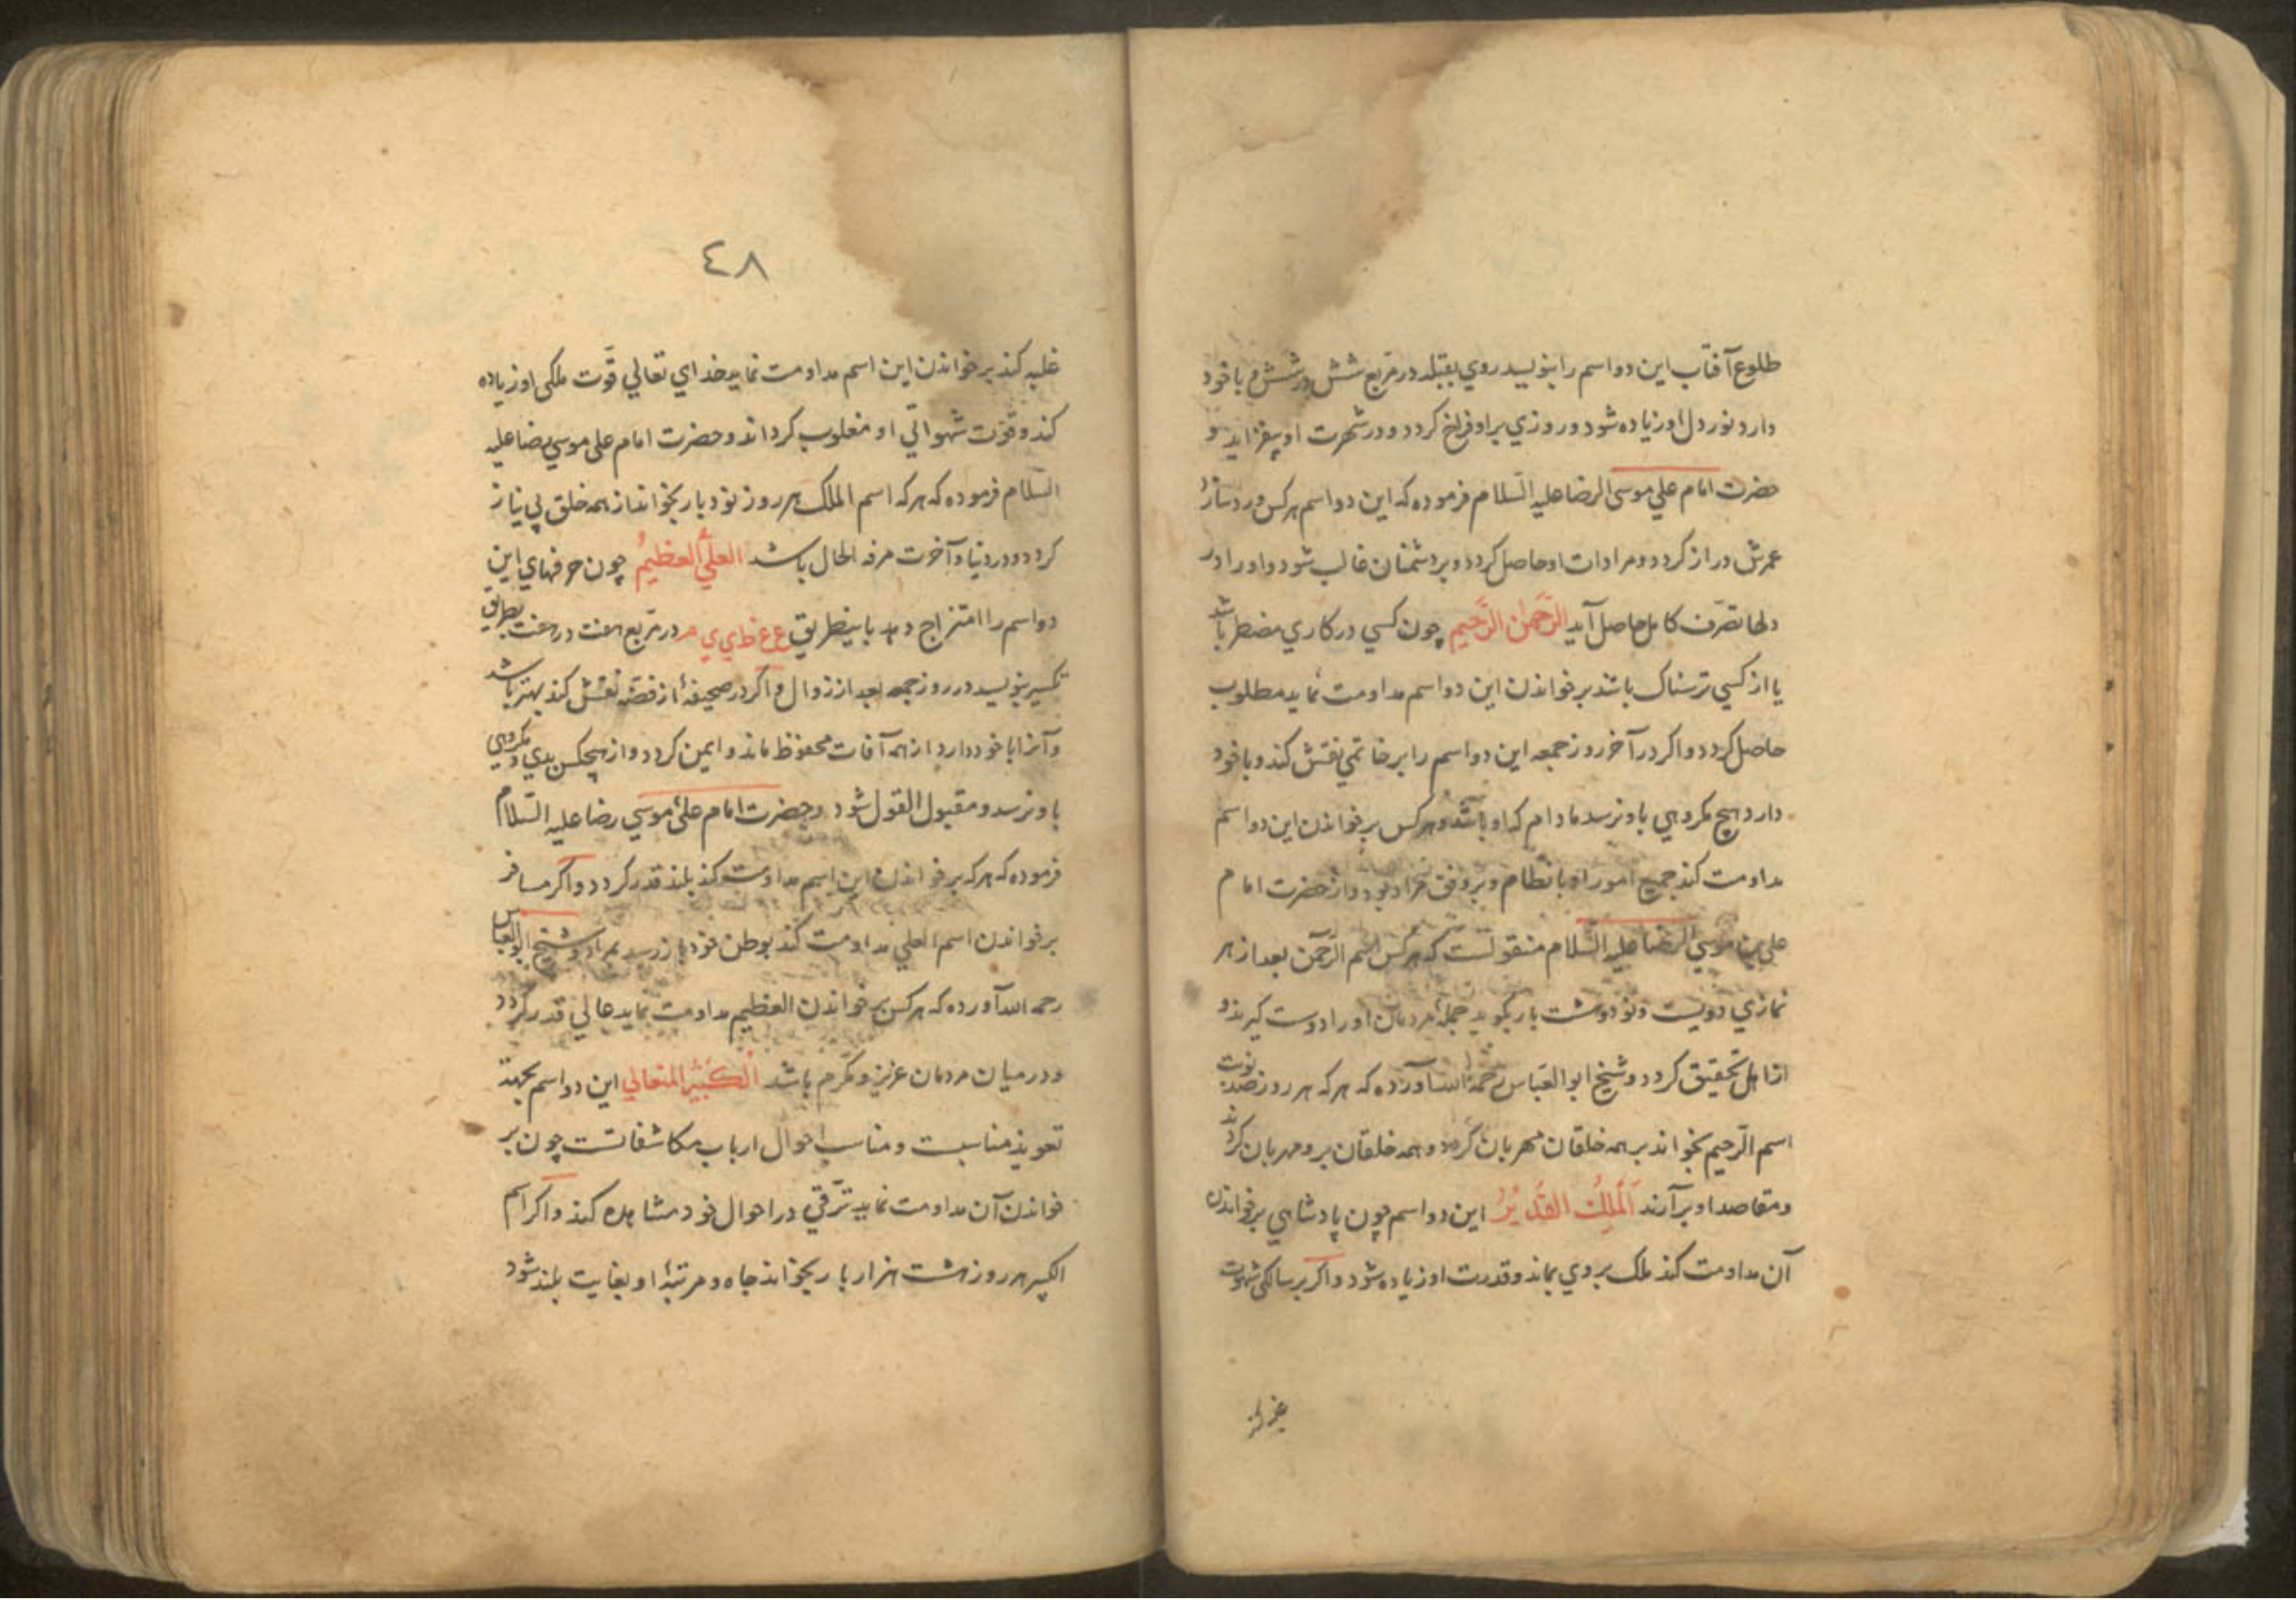 طلوع آفتاب این دو اسم را بنویسد روي بقبله در مربع شش در شش و با خود
دارد نور دل او زیاده شود و روزي بر او فراخ کردد و در شهرت او بیفزاید و
حضرت امام علي موسی الرضا علیه السّلام فرموده که این دو اسم هرکس ورد سازد
عمرش دراز کردد و مرادات او حاصل کردد و بر دشمنان غالب شود و او را در
دلها تصرّف کامل حاصل آید الرَّحمٰن الرَّحیم چون کسي در کاري مضطر باشد
یا از کسي ترسناک باشد بر خواندن این دو اسم مداومت نماید مطلوب
حاصل کردد و اکر در آخر روز جمعه این دو اسم را بر خاتمي نقش کند و با خود
دارد هیچ مکروهي باو نرسد مادام که او باشد و هرکس بر خواندن این دو اسم
مداومت کند جمیع امور او بانظام و بر وفق مراد بود و از حضرت امام
علي بن موسي الرضا علیه السّلام منقولست که هرکس اسم الرّحمن بعد از هر
نمازي دویست و نود و هشت بار بکوید جملهٔ مردمان او را دوست کیرند و
از اهل تحقیق کردد و شیخ ابو العبّاس رحمه الله آورده که هر که هر روز صد نوبت
اسم الرّحیم بخواند بر همه خلقان مهربان کردد و همه خلقان برو مهربان کردند
و مقاصد او برآرند اَلْمَلِكُ القَدِیْرُ این دو اسم چون پادشاهي بر خواندن
آن مداومت کند ملک بر وي بماند و قدرت او زیاده شود و اکر بر سالکی شهوت
٤٨
غلبه کند بر خواندن این اسم مداومت نماید خداي تعالي قوّت ملکی او زیاده
کند و قوّت شهواني او مغلوب کرداند و حضرت امام علي موسي رضا علیه
السّلام فرموده که هر که اسم الملک هر روز نود بار بخواند از همه خلق بي نیاز
کردد و در دنیا و آخرت مرفه الحال باشد العليُّ العظیمُ چون حرفهاي این
دو اسم را امتزاج دهد باینطریق ع ع ظ ي ي م در مربع هفت در هفت بطریق
تکسیر بنویسد در روز جمعه بعد از زوال و اکر در صحیفهٔ از فضّه نقش کند بهتر باشد
و آنرا با خود دارد از همه آفات محفوظ ماند و ایمن کردد و از هیچکس بدي و مکروهي
باو نرسد و مقبول القول شود و حضرت امام علي موسي رضا علیه السّلام
فرموده که هر که بر خواندن این اسم مداومت کند بلند قدر کردد و اکر مسافر
بر خواندن اسم العلي مداومت کند بوطن خود باز رسد بمراد و شیخ ابو العباس
رحمه الله آورده که هرکس بر خواندن العظیم مداومت نماید عالي قدر کردد
و در میان مردمان عزیز و مکرم باشد اَلْکَبیْرُ المتعالي این دو اسم بجهة
تعویذ مناسبت و مناسب احوال ارباب مکاشفاتست چون بر
خواندن آن مداومت نماید ترّقي در احوال خود مشاهده کند و اکر اسم
الکبیر هر روز هشت هزار بار بخواند جاه و مرتبهٔ او بغایت بلند شود